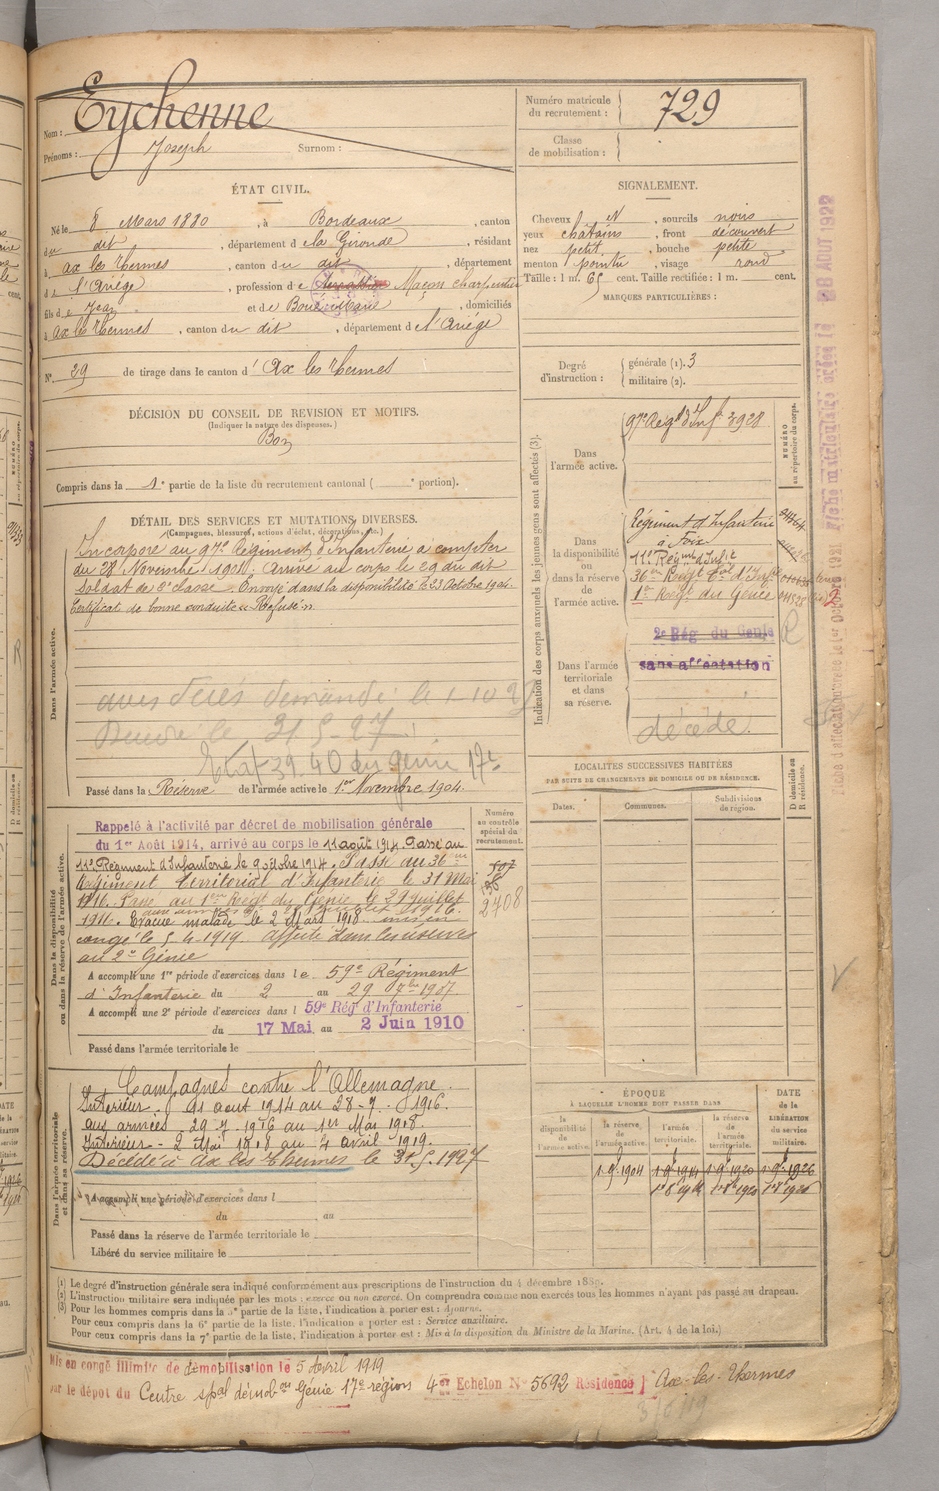 Nom : Eychenne
Prénoms : Joseph Surnom :
Numéro matricule du recrutement : 729
Classe de mobilisation :
ÉTAT CIVIL.
Né le 8 Mars 1880, à Bordeaux, canton
du dit, département de la Gironde, résidant
à ax les thermes, canton du dit, département
de l'Ariége, profession de Maçon charpentier
fils de Jean et de Marie, domiciliés
à ax les thermes, canton du dit, département de l'Ariége
N° 29 de tirage dans le canton d'Ax les thermes
SIGNALEMENT.
Cheveux N, sourcils noirs
yeux châtains, front découvert
nez petit, bouche petite
menton pointu, visage rond
Taille : 1 m. 65 cent. Taille rectifiée : 1 m. cent.
MARQUES PARTICULIÈRES :
Degré d'instruction : générale (1). 3
militaire (2).
DÉCISION DU CONSEIL DE REVISION ET MOTIFS.
(Indiquer la nature des dispenses.)
Bon
Compris dans la 1e partie de la liste du recrutement cantonal ( e portion).
DÉTAIL DES SERVICES ET MUTATIONS DIVERSES.
(Campagnes, blessures, actions d'éclat, décorations, etc.)
Dans l'armée active.
Incorporé au 97e Régiment d'Infanterie a compter
du 28 Novembre 1901. Arrivé au corps le 29 du dit
soldat de 2e classe. Envoyé dans la disponibilité le 23 Octobre 1904.
Certificat de bonne conduite « Refusé ».
demandé le 1 10 2
le 31 5 27
39.40 du génie 17e
Passé dans la Réserve de l'armée active le 1er Novembre 1904.
Indication des corps auxquels les jeunes gens sont affectés (3).
Dans l'armée active.
97e Régt d'Inf. 3928
NUMÉRO au répertoire du corps.
Dans la disponibilité ou dans la réserve de l'armée active.
Régiment d'Infanterie
à Foix
11e Régiment d'Inft
36e Régt Tal d'Infie
1er Régt du Génie
Dans l'armée territoriale et dans sa réserve.
2e Rég du Genie
sans affectation
décédé.
LOCALITÉS SUCCESSIVES HABITÉES
PAR SUITE DE CHANGEMENTS DE DOMICILE OU DE RÉSIDENCE.
Dates. Communes. Subdivisions de région. D domicile ou R résidence.
Dans la disponibilité ou dans la réserve de l'armée active.
Numéro au contrôle spécial du recrutement.
Rappelé à l'activité par décret de mobilisation générale
du 1er Août 1914, arrivé au corps le 11 août 1914. Passé au
11e Régiment d'Infanterie le 9 octobre 1914. Passé au 36me
Régiment territorial d'Infanterie le 31 Mai
1916. Passé au 1er Régt du Génie le 29 juillet
1916. Evacué malade le 2 Mars 1918. mis en
congé le 5-4-1919. Affecté dans les réserves
au 2e Génie
2408
A accompli une 1re période d'exercices dans le 59e Régiment
d'Infanterie du 2 au 29 7bre 1907.
A accompli une 2e période d'exercices dans l 59e Rég d'Infanterie
du 17 Mai au 2 Juin 1910
Passé dans l'armée territoriale le
Dans l'armée territoriale et dans sa réserve.
Campagnes contre l'Allemagne.
Intérieur. 11 aout 1914 au 28-7-1916.
aux armées 29-7-1916 au 1er Mai 1918.
Intérieur - 2 Mai 1918 au 4 avril 1919.
Décédé à Ax les Thermes le 31.5.1927
A accompli une période d'exercices dans l
du au
Passé dans la réserve de l'armée territoriale le
Libéré du service militaire le
ÉPOQUE
À LAQUELLE L'HOMME DOIT PASSER DANS
la disponibilité de l'armée active. la réserve de l'armée active. l'armée territoriale. la réserve de l'armée territoriale.
DATE de la LIBÉRATION du service militaire.
1-9b-1904 1-9b-1914 1-9b-1920 1-9b-1926
(1) Le degré d'instruction générale sera indiqué conformément aux prescriptions de l'instruction du 4 décembre 1889.
(2) L'instruction militaire sera indiquée par les mots : exercé ou non exercé. On comprendra comme non exercés tous les hommes n'ayant pas passé au drapeau.
(3) Pour les hommes compris dans la 5e partie de la liste, l'indication à porter est : Ajourné.
Pour ceux compris dans la 6e partie de la liste, l'indication à porter est : Service auxiliaire.
Pour ceux compris dans la 7e partie de la liste, l'indication à porter est : Mis à la disposition du Ministre de la Marine. (Art. 4 de la loi.)
Mis en congé illimité de démobilisation le 5 Avril 1919
par le dépôt du Centre spal démobon Génie 17e région 4e Echelon N° 5692 Résidence Ax-les-Thermes